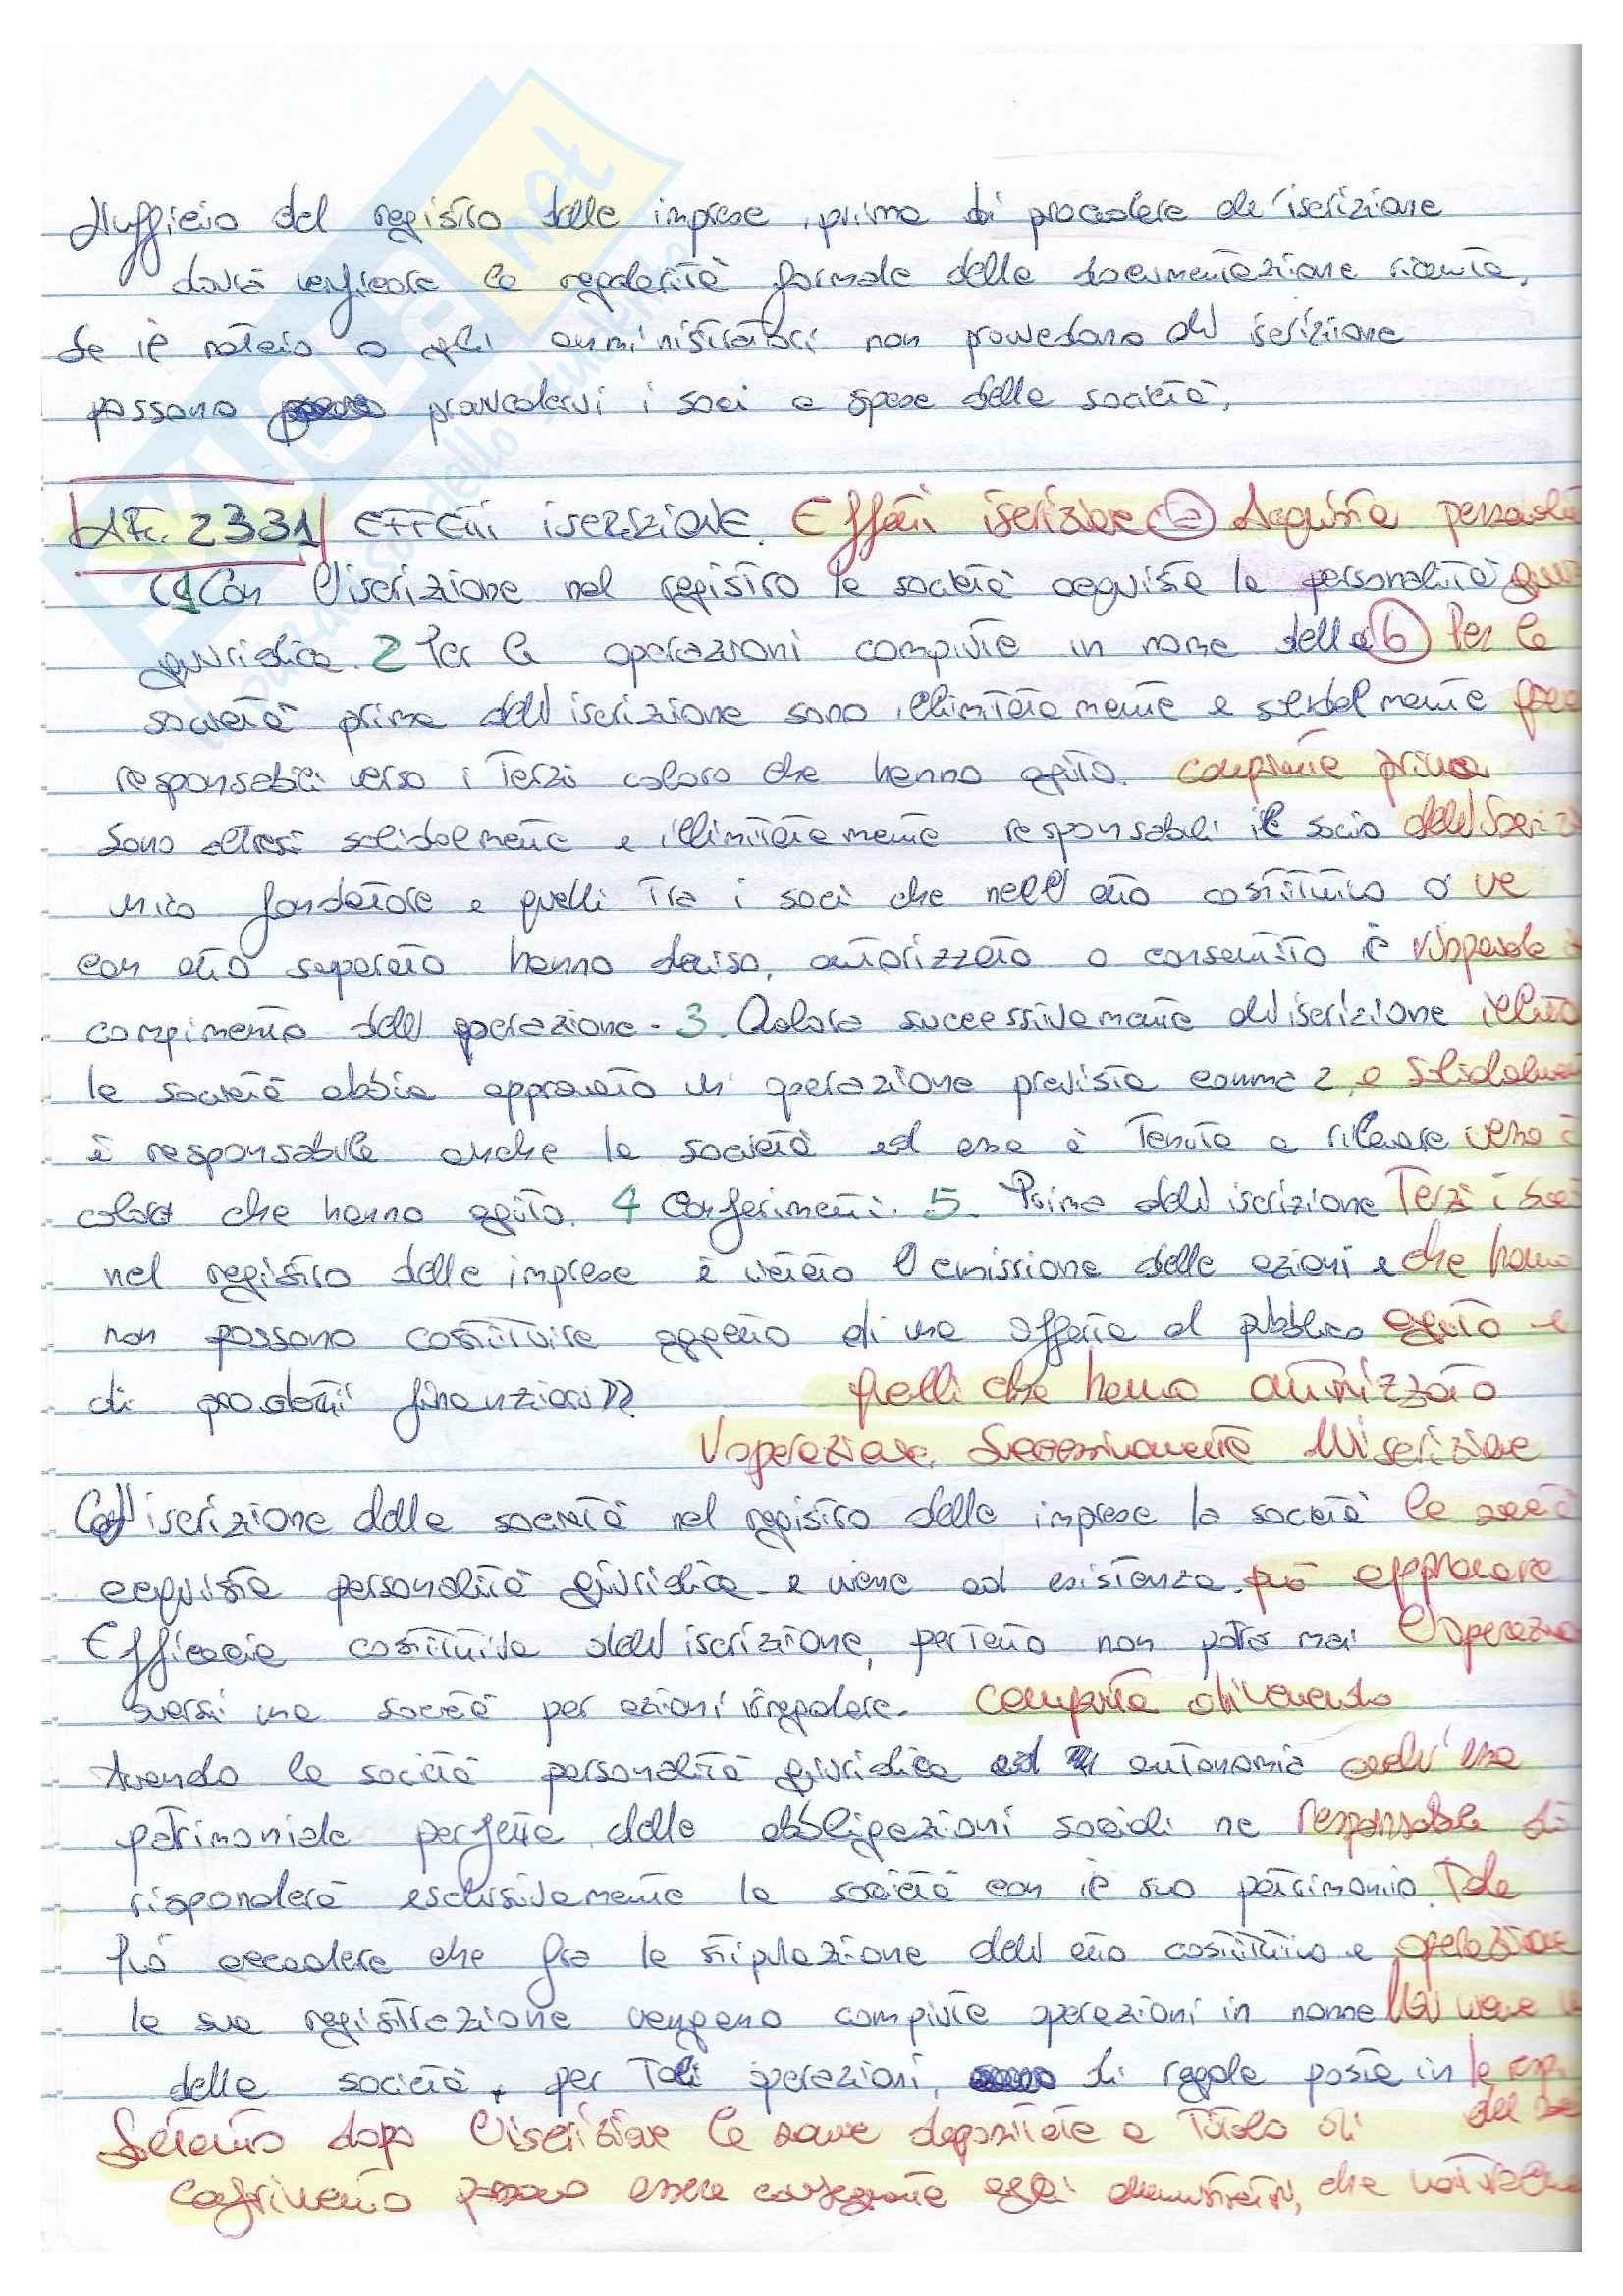 L'ufficio del registro delle imprese, prima di procedere all'iscrizione
dovrà verificare la regolarità formale della documentazione ricevuta.
Se il notaio o gli amministratori non provvedano all'iscrizione
possono provvedervi i soci a spese della società.
Art. 2331 EFFETTI ISCRIZIONE. Effetti iscrizione (a) Acquista personalità
«1 Con l'iscrizione nel registro la società acquista la personalità giuri
giuridica. 2 Per le operazioni compiute in nome della (b) Per le
società prima dell'iscrizione sono illimitatamente e solidalmente
responsabili verso i terzi coloro che hanno agito. compiute prima
Sono altresì solidalmente e illimitatamente responsabili il socio dell'iscrizio
unico fondatore e quelli tra i soci che nell'atto costitutivo o ne
con atto separato hanno deciso, autorizzato o consentito il rispondo
compimento dell'operazione. 3. Qualora successivamente all'iscrizione illimita
la società abbia approvato un'operazione prevista comma 2, e solidalmen
è responsabile anche la società ed essa è tenuta a rilevare verso i
coloro che hanno agito. 4 Conferimenti. 5. Prima dell'iscrizione Terzi i soci
nel registro delle imprese è vietato l'emissione delle azioni e che hanno
non possono costituire oggetto di una offerta al pubblico agito e
di prodotti finanziari»
quelli che hanno autorizzato
l'operazione. Successivamente all'iscrizione
Coll'iscrizione della società nel registro delle imprese la società la società
acquista personalità giuridica e viene ad esistenza. può approvare
Efficacia costitutiva dell'iscrizione, pertanto non potrà mai l'operazio
aversi una società per azioni irregolare. compiuta divenendo
Avendo la società personalità giuridica ed autonomia anch'essa
patrimoniale perfetta, delle obbligazioni sociali ne responsabile di
risponderà esclusivamente la società con il suo patrimonio. Tale
Può accadere che fra la stipulazione dell'atto costitutivo e operazione
la sua registrazione vengano compiute operazioni in nome
della società, per tali operazioni, di regola poste in
Soltanto dopo l'iscrizione le somme depositate a titolo di
conferimento possono essere consegnate agli amministratori, che